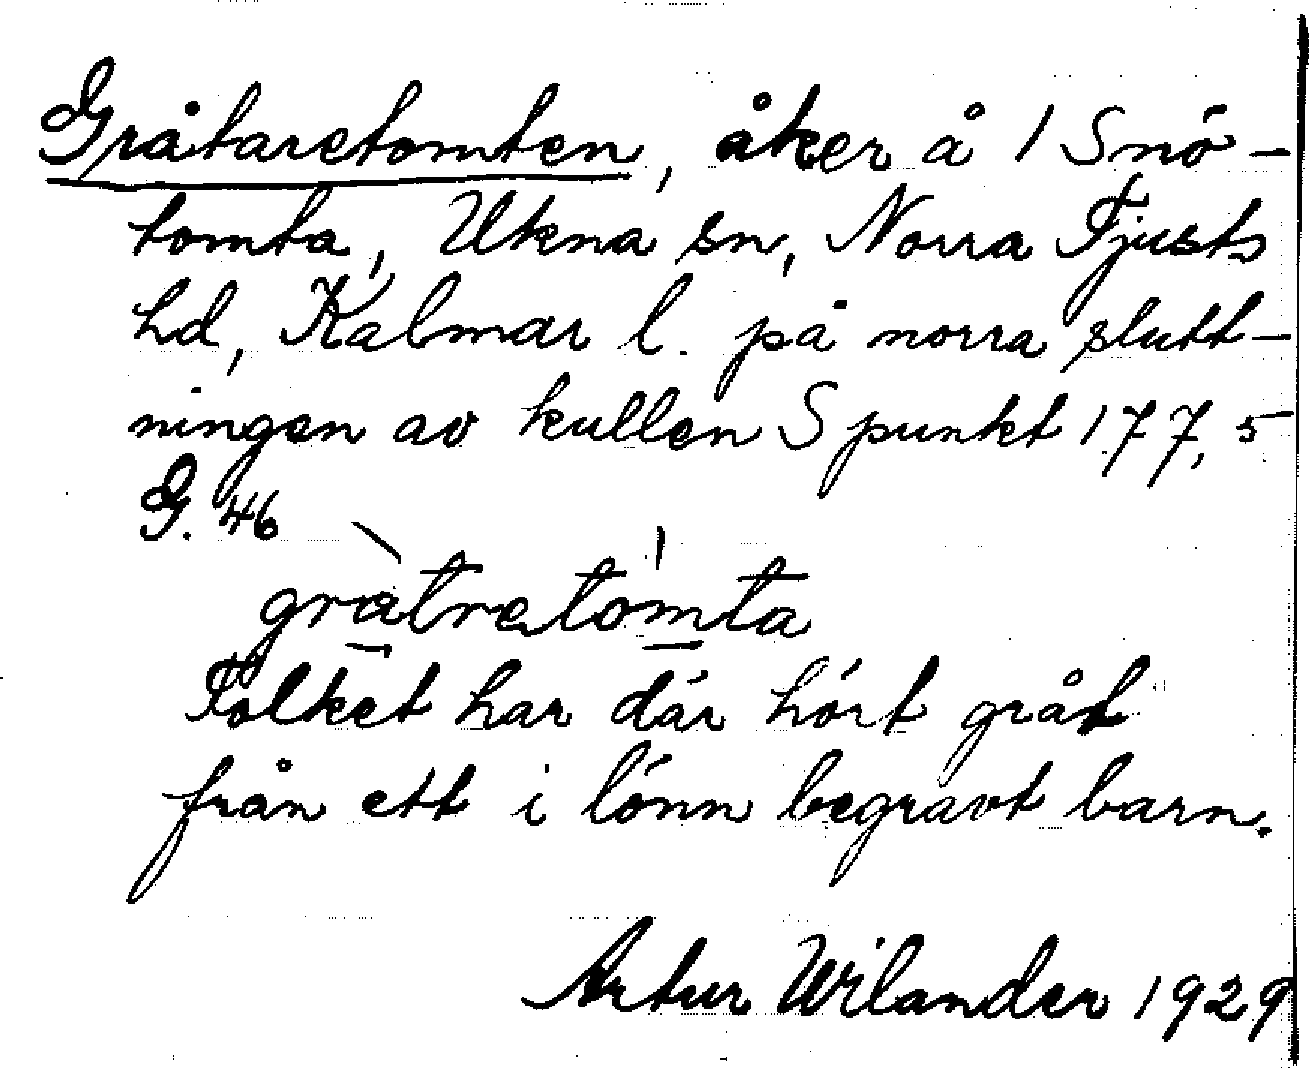 Gråtaretomten, åker å 1 Snö-
tomta, Ukna sn, Norra Tjusts
hd, Kalmar l. på norra slutt-
ningen av kullen S punkt 177,5
G. 46
gràtretómta
Folket har där hört gråt
från ett i lönn begravt barn.
Artur Wilander 1929